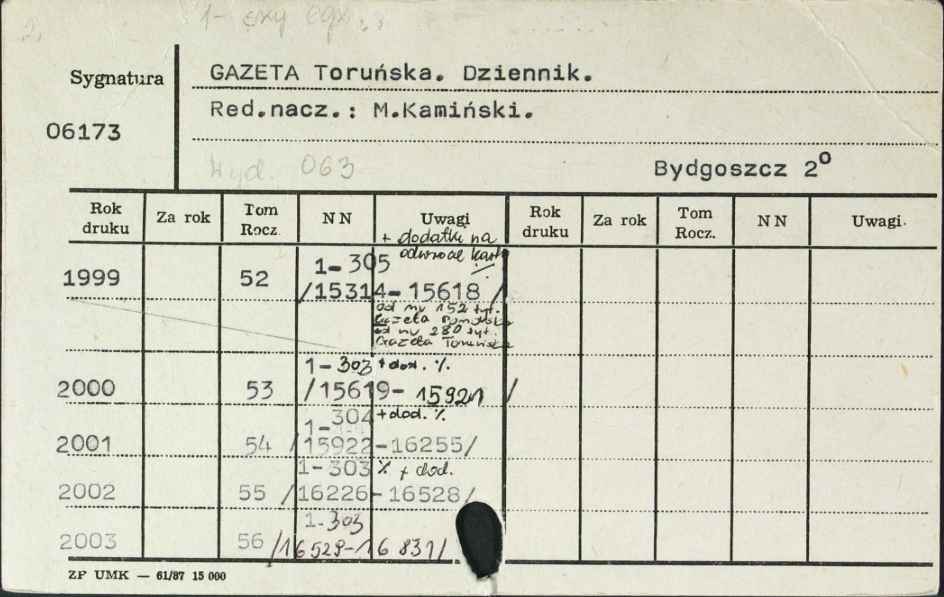 2.
Sygnatura
GAZETA Toruńska. Dziennik.
06173
Red.nacz.: M.Kamiński.
Wyd. 063
Bydgoszcz 2⁰
Rok druku Za rok Tom Rocz. NN Uwagi Rok druku Za rok Tom Rocz. NN Uwagi.
+ dodatki na
odwrocie karty
1999 52 1-305
/15314-15618 /
od nru 152 tyt.
Gazeta Pomorska
od nru 280 tyt.
Gazeta Toruńska
1-303 + dod. %
2000 53 /15619-15921 /
1-304 + dod. %
2001 54 /15922-16255/
1-303 % + dod.
2002 55 /16226-16528/
1-303
2003 56 /16529-16831/
ZP UMK — 61/87 15 000